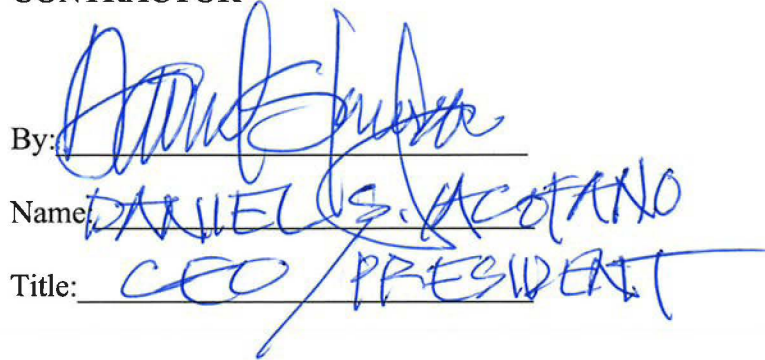 CONTRACTOR
By:
Name: DANIEL S. IACOFANO
Title: CEO / PRESIDENT